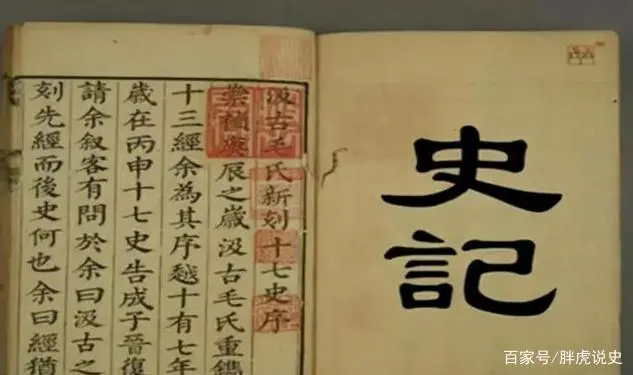 史記
汲古毛氏新刻十七史序
崇禎庚辰之歲汲古毛氏重鐫
十三經余為其序越十有七年
歲在丙申十七史告成子晉復
請余叙客有問於余曰汲古之
刻先經而後史何也余曰經猶
百家号/胖虎说史